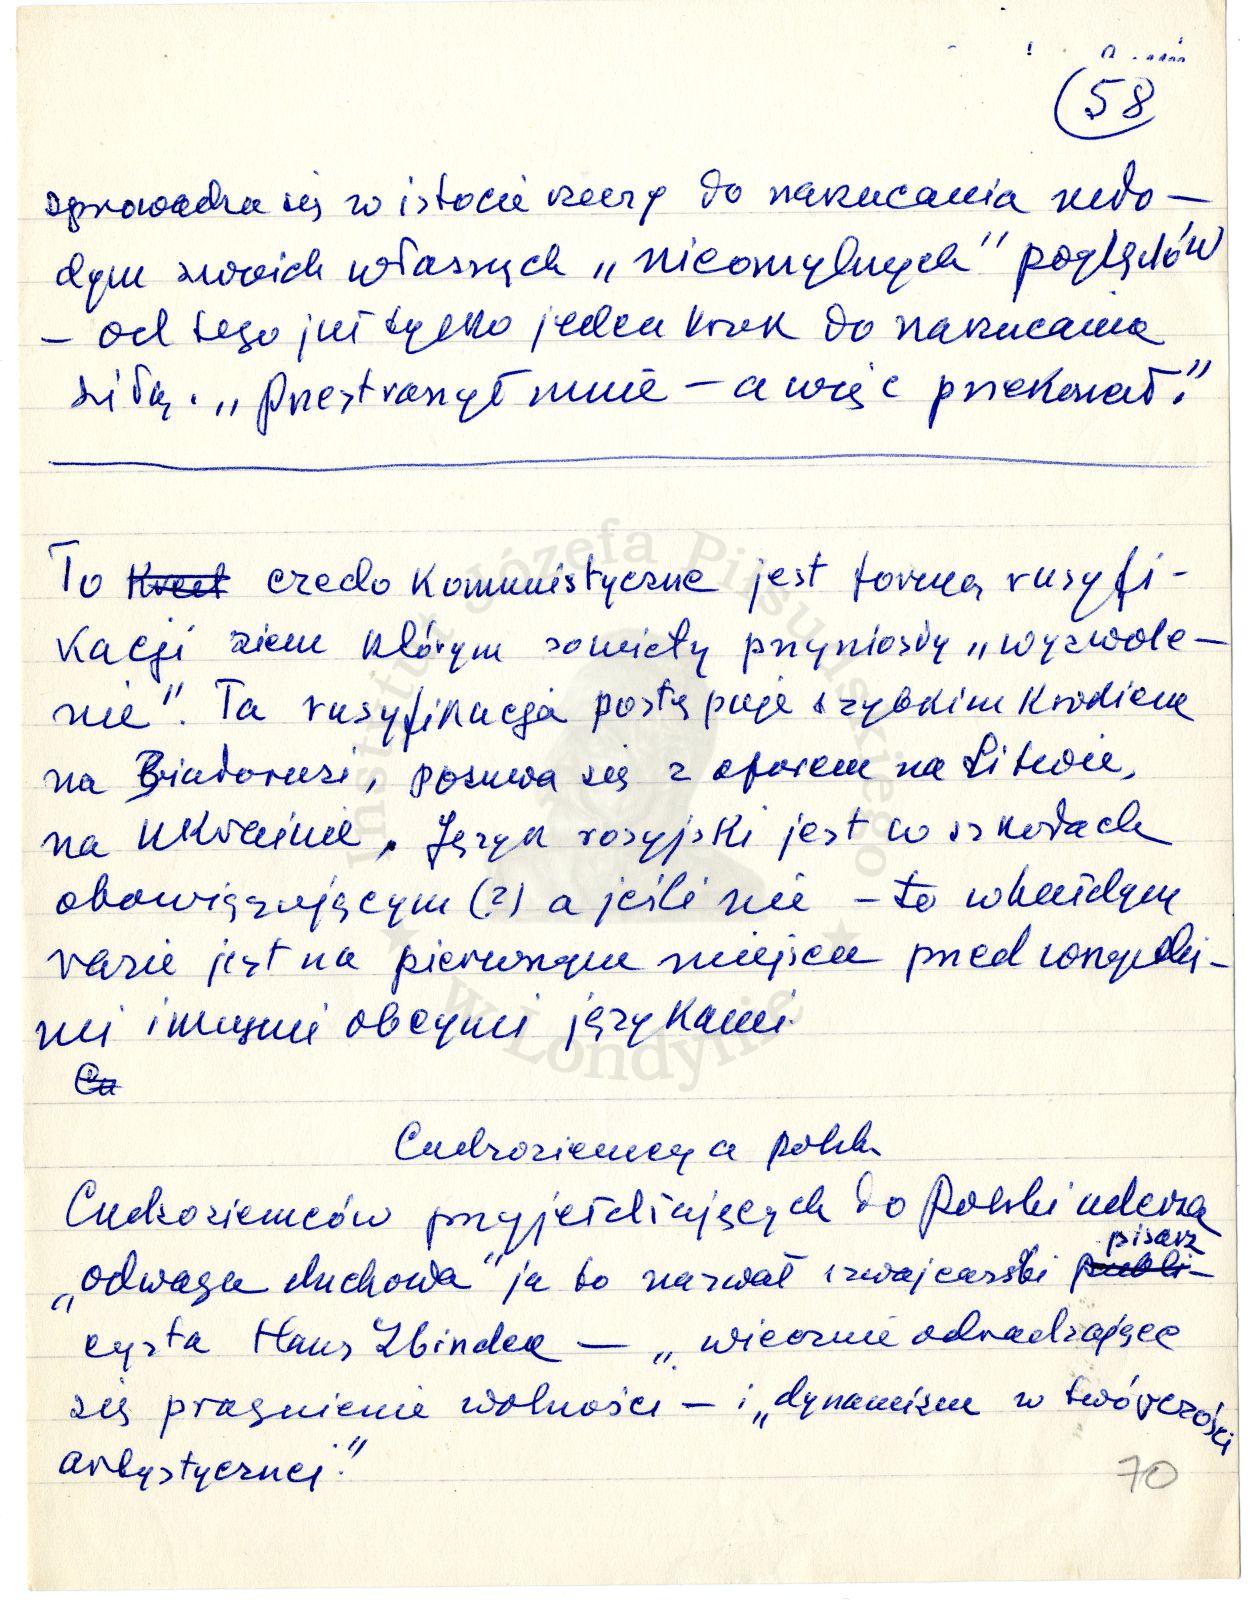 58
sprowadza się w istocie rzeczy do narzucania
dym swoich własnych „nieomylnych" poglądów
– od tego już tylko jeden krok do narzucania
siłą. „Przestraszył mnie – a więc przekonał."
To credo komunistyczne jest formą rusyfi-
kacji ziem którym sowiety przyniosły „wyzwole-
nie". Ta rusyfikacja postępuje szybkim krokiem
na Białorusi, posuwa się z oporem na Litwie,
na Ukrainie. Język rosyjski jest w szkołach
obowiązującym (?) a jeśli nie – to w każdym
razie jest na pierwszym miejscu przed wszystki-
mi innymi obcymi językami.
Cu
Cudzoziemcy a Polska
Cudzoziemców przyjeżdżających do Polski uderza
„odwaga duchowa" ja to nazwał szwajcarski publi-
pisarz
cysta Hans Zbinden – „wiecznie odradzające
się pragnienie wolności – i „dynamizm w twórczości
artystycznej."
70
Instytut Józefa Piłsudskiego
w Londynie